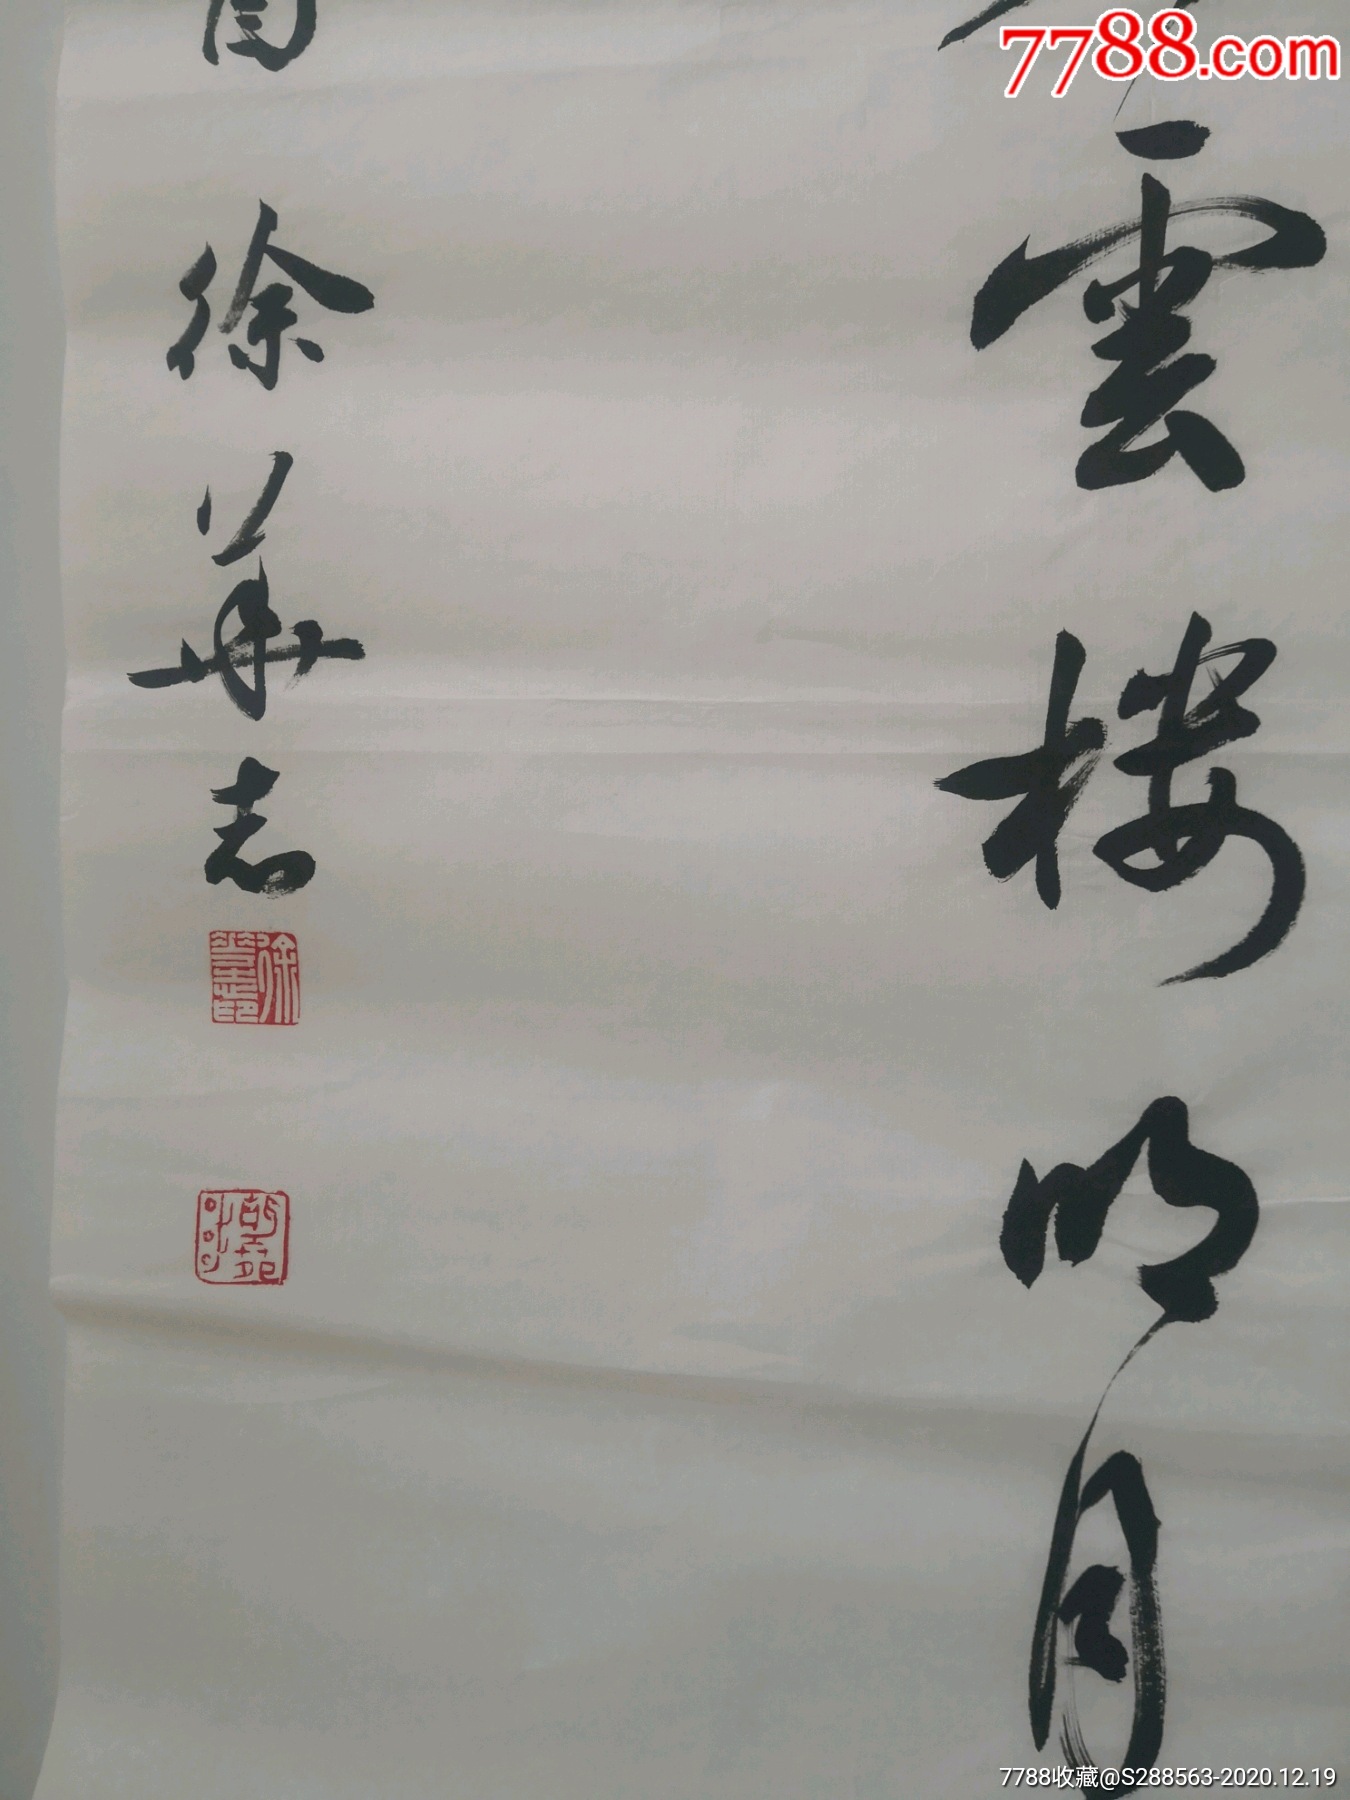 7788.com
雲楼明月
徐華志
徐華志印
7788收藏@S288563-2020.12.19